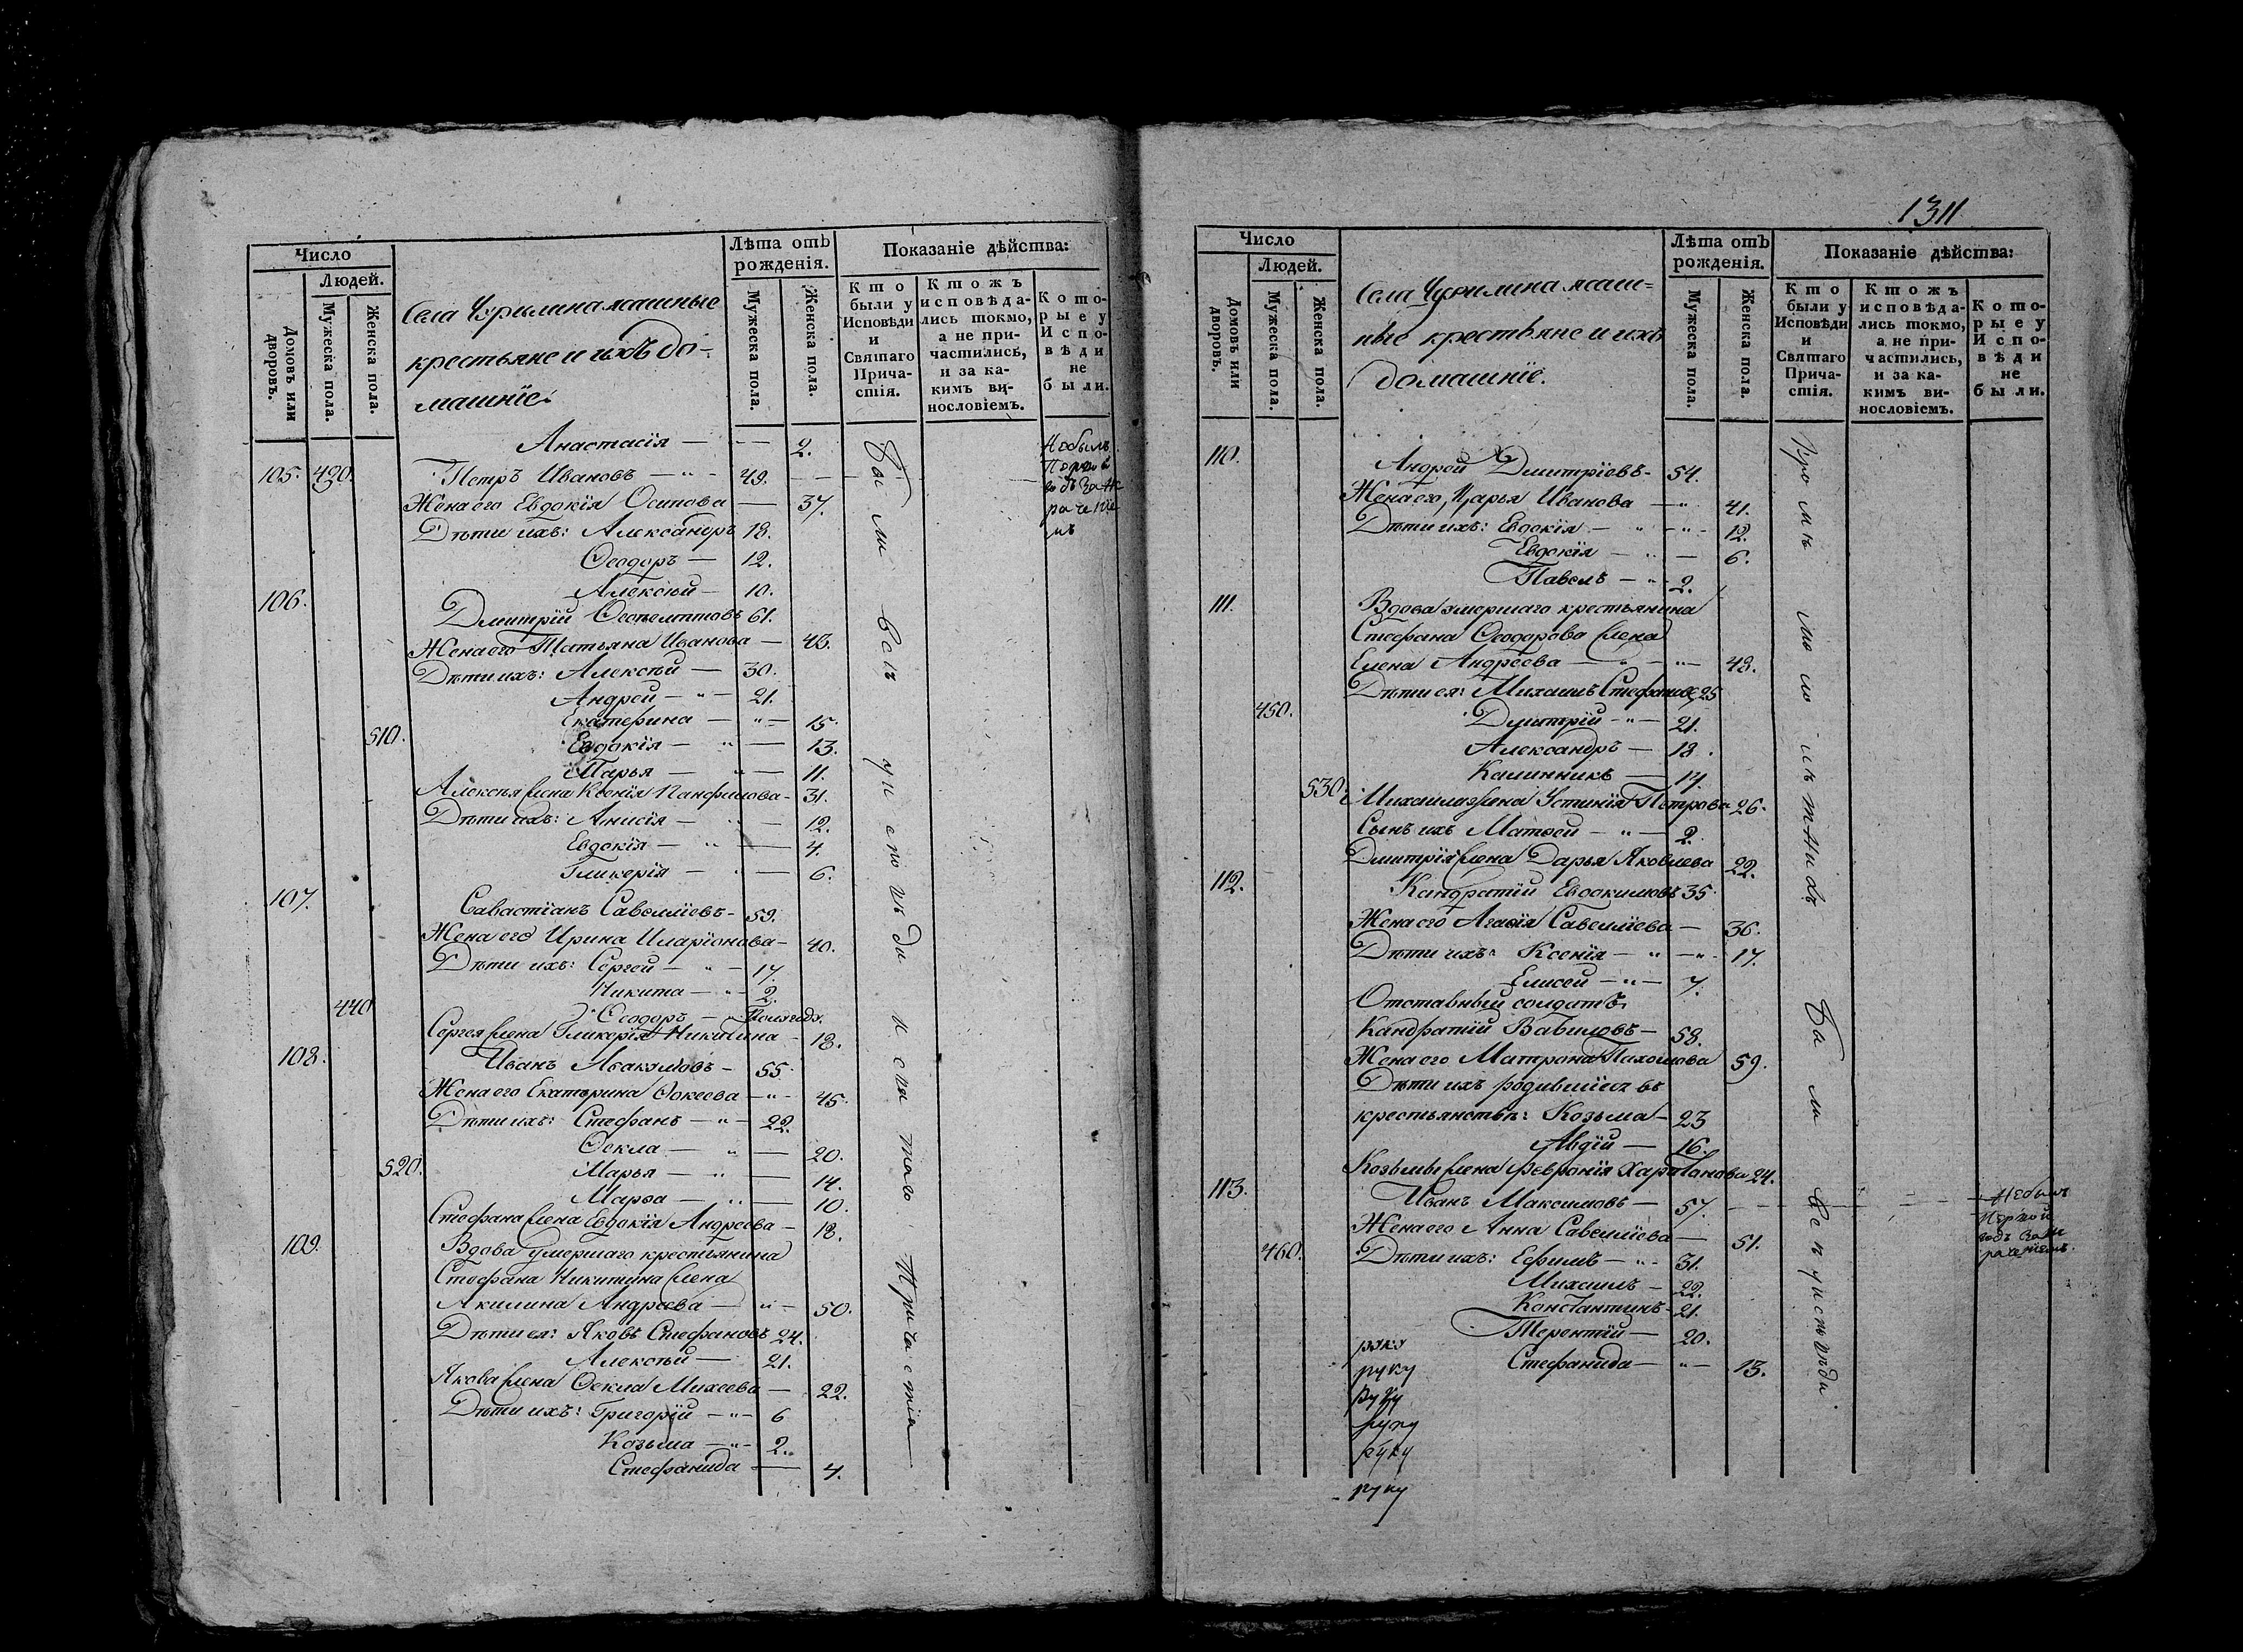 Число
Людей.
Домовъ или дворовъ.
Мужеска пола.
Женска пола.
Села Чурилина ясашные
крестьяне и ихъ до-
машніе:
Лѣта отъ
рожденія.
Мужеска пола.
Женска пола.
Показаніе дѣйства:
Кто
были у
Исповѣди
и
Святаго
Прича-
стія.
Ктожъ
исповѣда-
лись токмо,
а не при-
частились,
и за ка-
кимъ ви-
нословіемъ.
Кото-
рые у
Испо-
вѣди
не
были.
Анастасія — 2.
105. 430. Петръ Ивановъ — 49.
Жена его Евдокія Осипова — 37.
Дѣти ихъ: Александръ 18.
Ѳеодоръ — 12.
Алексѣй — 10.
106. Дмитрій 61.
Жена его Татьяна Иванова — 43.
Дѣти ихъ: Алексѣй — 30.
Андрей — 21.
Екатерина — 15.
510. Евдокія — 13.
Марья — 11.
Алексѣя жена Ксенія Панфилова — 31.
Дѣти ихъ: Анисія — 12.
Евдокія — 4.
Гликерія — 6.
107. Савастіанъ Савеллievъ — 59.
Жена его Ирина Иларіонова — 40.
Дѣти ихъ: Сергей — 17.
Никита — 2.
440 Ѳеодоръ — полгода.
Сергея жена Гликерія Никитина — 18.
108. Иванъ Авакумовъ — 55.
Жена его Екатерина Фокеева — 45.
Дѣти ихъ: Стефанъ — 22.
Ѳекла — 20.
520. Марья — 14.
Марѳа — 10.
Стефана жена Евдокія Андреева — 18.
109. Вдова умершаго крестьянина
Стефана Никитина жена
Акилина Андреева — 50.
Дѣти ея: Яковъ Стефановъ 24.
Алексѣй — 21.
Якова жена Ѳекла Михеева — 22.
Дѣти ихъ: Григорій — 6
Козьма — 2.
Стефанида — 4.
Были всѣ у исповѣди и святаго Причастія
Небылъ
Первой
годъ за не
раченіе
мъ
1311
Число
Людей.
Домовъ или дворовъ.
Мужеска пола.
Женска пола.
Села Чурилина ясаш=
ные крестьяне и ихъ
домашніе.
Лѣта отъ
рожденія.
Мужеска пола.
Женска пола.
Показаніе дѣйства:
Кто
были у
Исповѣди
и
Святаго
Прича-
стія.
Ктожъ
исповѣда-
лись токмо,
а не при-
частились,
и за ка-
кимъ ви-
нословіемъ.
Кото-
рые у
Испо-
вѣди
не
были.
110. Андрей Дмитріевъ — 54.
Жена его, Дарья Иванова — 41.
Дѣти ихъ: Евдокія — 12.
Евдокія — 6.
Павелъ — 2.
111. Вдова умершаго крестьянина
Стефана Ѳеодорова жена
Елена Андреева — 48.
Дѣти ея: Михаилъ Стефановъ 25
450. Дмитрій — 21.
Александръ — 18.
Каллинникъ — 14.
530. Михаила жена Устинія Петрова 26.
Сынъ ихъ Матвей — 2.
Дмитрія жена Дарья Яковлева 22.
112. Кандратій Евдокимовъ 35.
Жена его Агаѳія Савелліева — 36.
Дѣти ихъ: Ксенія — 17.
Елисей — 7.
Отставный солдатъ
Кандратій Вавиловъ — 58.
Жена его Матрона Пахомова 59.
Дѣти ихъ родившіеся въ
крестьянствѣ: Козьма — 23
Авдій — 16.
Козьмы жена Февронія Харитонова 24.
113. Иванъ Максимовъ — 57.
Жена его Анна Савелліева — 51.
460. Дѣти ихъ: Ефимъ — 31.
Михаилъ — 22.
Константинъ — 21.
Терентій — 20.
Стефанида — 13.
Были всѣ у исповѣди
Небылъ
Первой
годъ за не
раченіемъ.
руку
руку
руку
руку
руку
руку